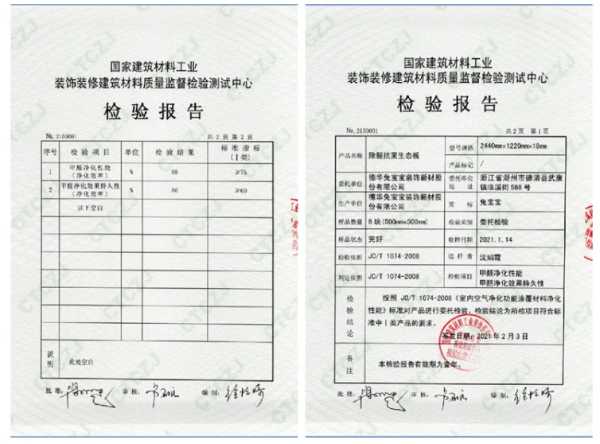 国家建筑材料工业
装饰装修建筑材料质量监督检验测试中心
检验报告
共 2 页 第 2 页
序号 检 验 项 目 单位 检 验 结 果 标 准 指 标
(Ⅰ类)
1 甲醛净化性能
(净化效率) %
2 甲醛净化效果持久性
(净化效率) %
以下空白
说明 此处空白
批准: 审核: 编制:
国家建筑材料工业
装饰装修建筑材料质量监督检验测试中心
检验报告
共 2 页 第 1 页
产品名称 除醛抗菌生态板 型号规格 2440mm×1220mm×18mm
产品标记 /
委托单位 德华兔宝宝装饰新材股份有限公司 委托单位地址 浙江省湖州市德清县武康镇临溪街588号
生产单位 德华兔宝宝装饰新材股份有限公司 商标 兔宝宝
样品数量 8 块(500mm×500mm) 检验类别 委托检验
样品状态 完好 收样日期 2021.1.14
检验依据 JC/T 1074-2008 送样者
判定依据 JC/T 1074-2008 检验项目 甲醛净化性能
甲醛净化效果持久性
检验结论
按照 JC/T 1074-2008《室内空气净化功能涂覆材料净化
性能》标准对产品进行委托检验,检验结论为所检项目符合标
准中Ⅰ类产品的要求。
签发日期:2021年2月3日
备注 本检验报告有效期为壹年。
批准: 审核: 编制:
CTCZJ